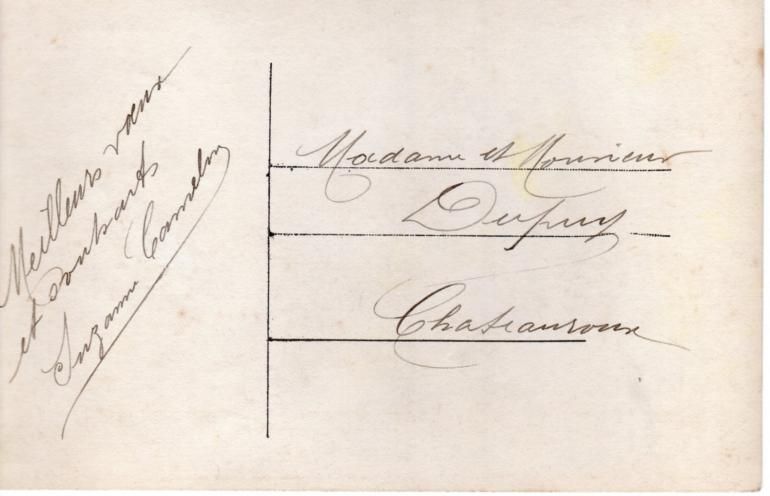 Meilleurs vœux
et Souhaits
Suzanne Camelin
Madame et Monsieur
Dupuy
Chateauroux